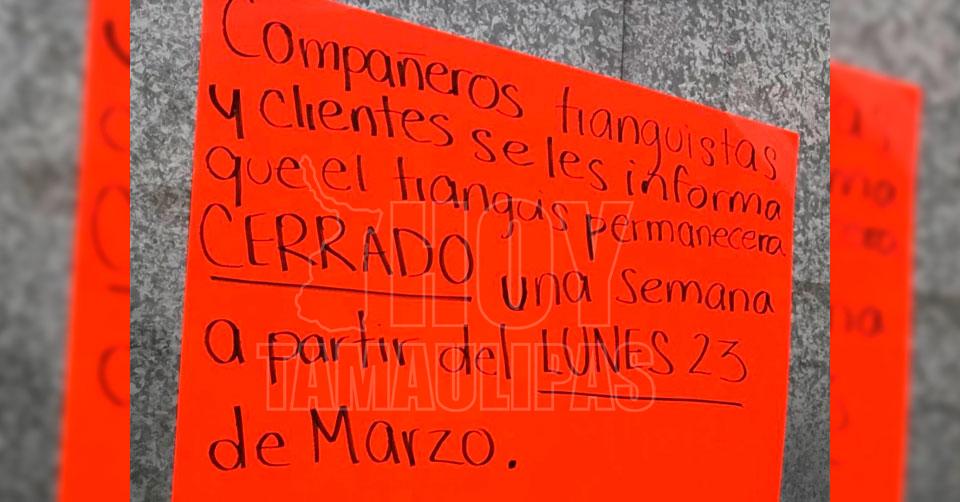 Compañeros tianguistas
y clientes se les informa
que el tianguis permanecera
CERRADO una semana
a partir del LUNES 23
de Marzo.
HOY
TAMAULIPAS